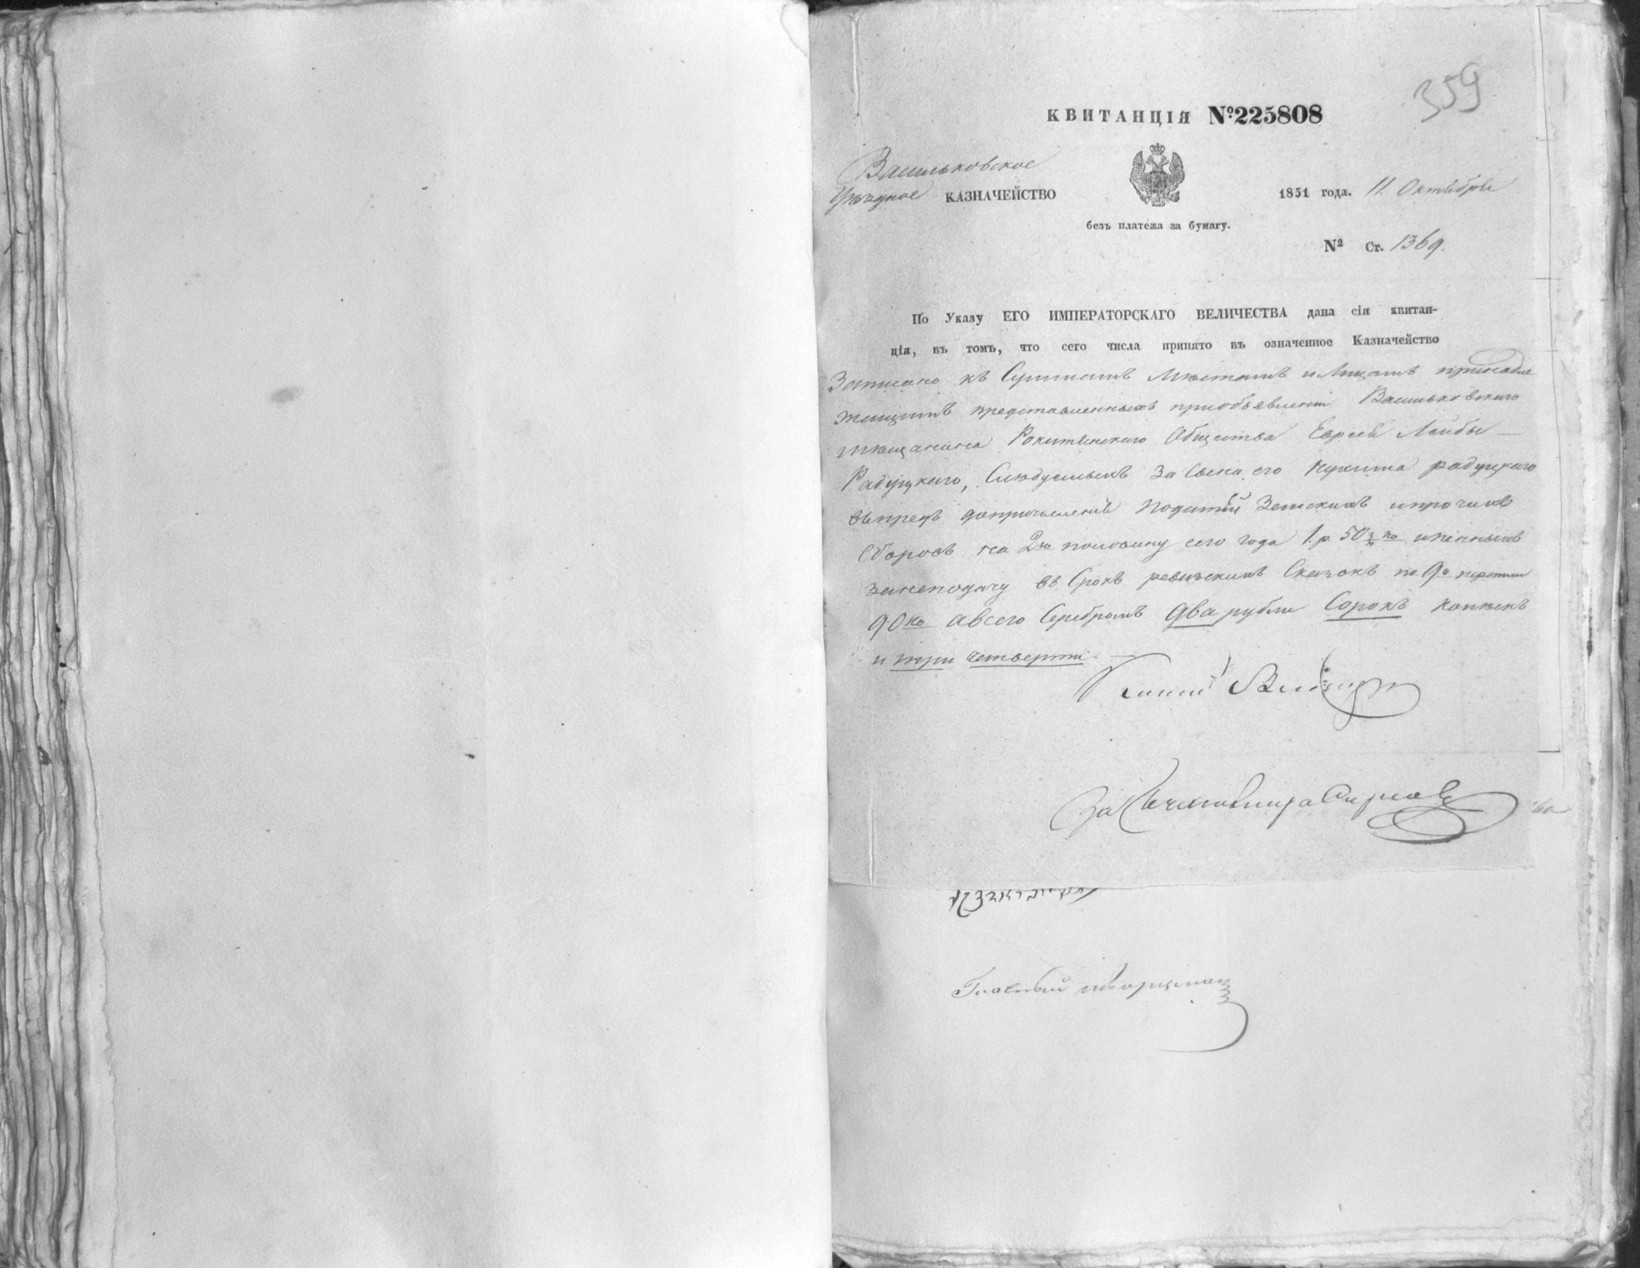 359
КВИТАНЦІЯ №225808
Васильковское
Уѣздное КАЗНАЧЕЙСТВО
1851 года. 11. Октября
безъ платежа за бумагу.
№ Ст. 1369.
По Указу ЕГО ИМПЕРАТОРСКАГО ВЕЛИЧЕСТВА дана сія квитан-
ція, въ томъ, что сего числа принято въ означенное Казначейство
Записано къ Суммамъ Мѣстамъ и Лицамъ принадле
жащимъ представленныхъ приобъявленіи Васильковскаго
мѣщанина Рокитянскаго Общества Еврея Лейбы
Радуцкаго, Слѣдуемыхъ За Сына его Нухима радуцкаго
впредь допричисленія Податей Земскихъ ипрочихъ
Сборовъ на 2ю половину сего года 1 р 50 3/4 ко ипенныхъ
занеподачу въ Срокъ ревизскихъ Сказокъ по 9й
90 ко авсего Серебромъ два рубли Сорокъ копѣекъ
и три четверти.
За
Главный